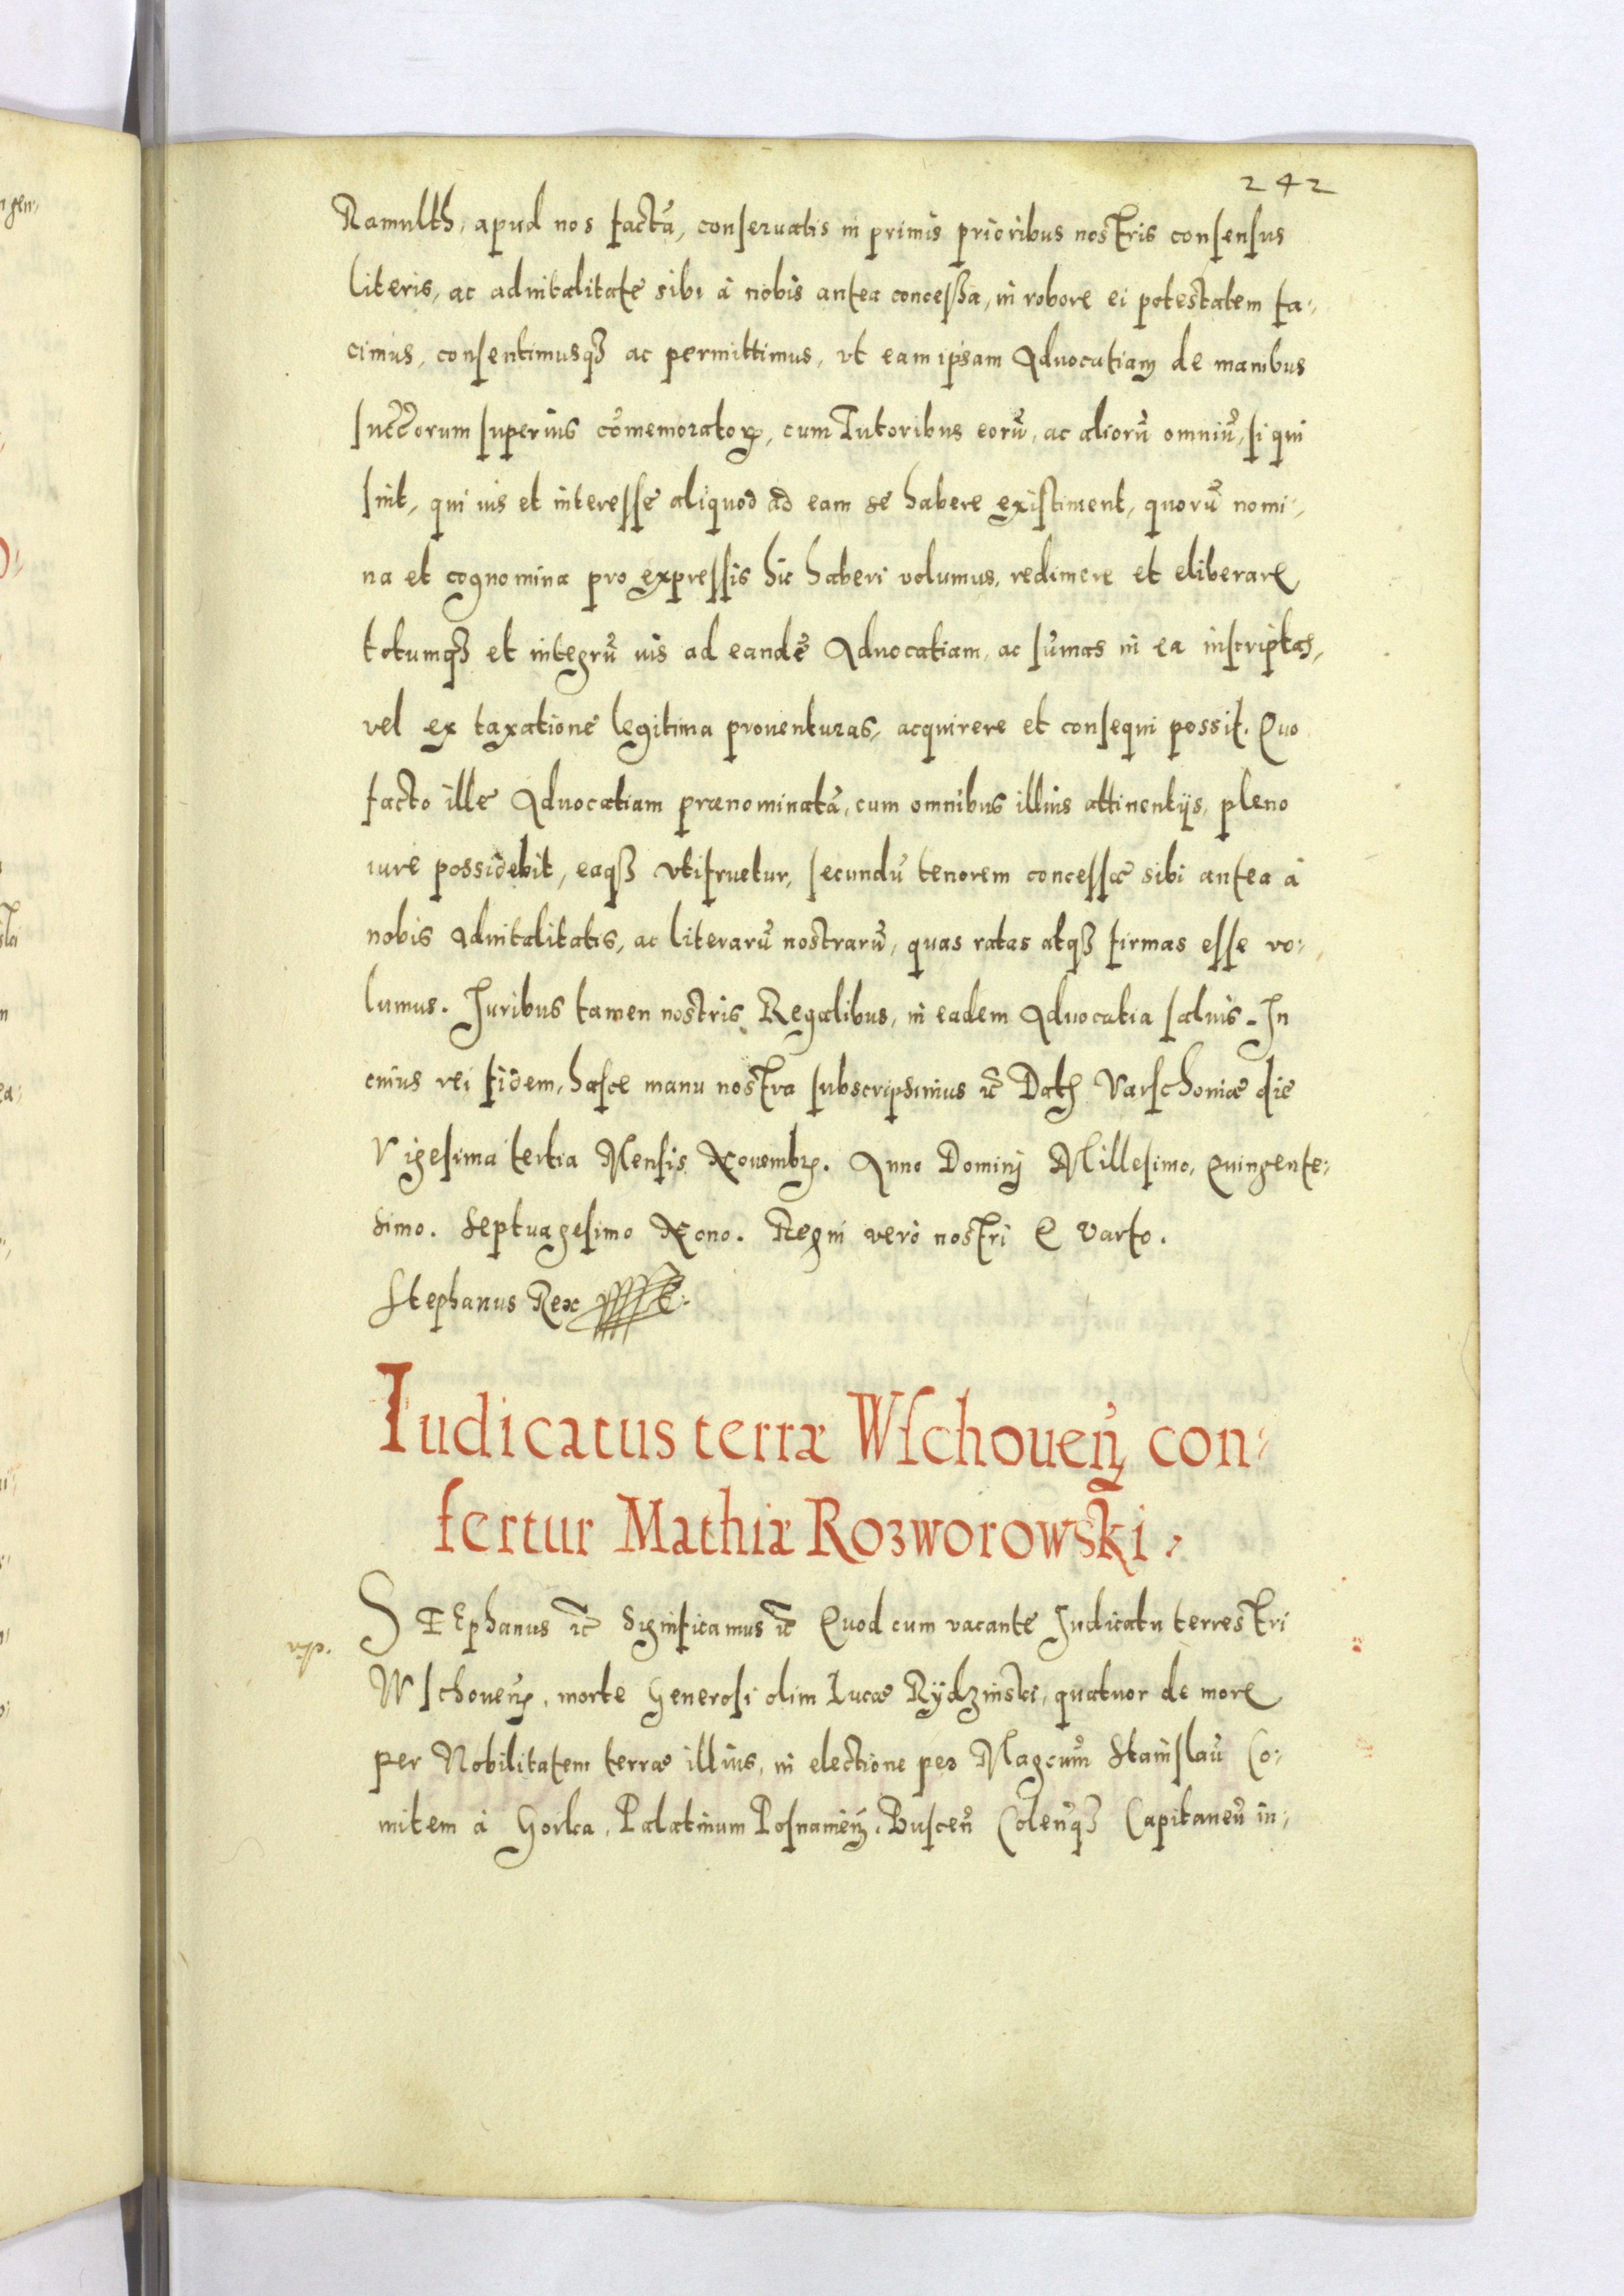 242
Ramulth, apud nos factā, conseruatis in primis prioribus nostris consensus
literis, ac aduitalitate sibi à nobis antea concessa, in robore ei potestatem fa-
cimus, consentimusqȝ ac permittimus, vt eam ipsam Aduocatiam de manibus
succorum superius cōmemoratoꝝ, cum Tutoribus eorū, ac aliorū omniū, si qui
sint, qui ius et interesse aliquod ad eam se habere existiment, quorū nomi-
na et cognomina pro expressis hic haberi volumus, redimere et eliberare
totumqȝ et integrū ius ad eandē Aduocatiam, ac sūmas in ea inscriptas,
vel ex taxatione legitima prouenturas, acquirere et consequi possit. Quo
facto ille Aduocatiam prænominatā, cum omnibus illius attinentijs, pleno
iure possidebit, eaqȝ vtifruetur, secundū tenorem concessæ sibi antea à
nobis Aduitalitatis, ac literarū nostrarū, quas ratas atqȝ firmas esse vo-
lumus. Juribus tamen nostris Regalibus, in eadem Aduocatia saluis. In
cuius rei fidem, hasce manu nostra subscripsimus ꝛc̄ Datꝭ Varschouiæ die
Vigesima tertia Mensis Nouembꝝ. Anno Dominj Millesimo, Quingente-
simo. Septuagesimo Nono. Regni verò nostri Quarto.
Stephanus Rex
Iudicatus terræ Wschoueñ con-
fertur Mathiæ Rozworowski.
STEphanus ꝛc̄ Significamus ꝛc̄ Quod cum vacante Judicatu terrestri
Wschoueñ, morte Generosi olim Lucæ Rÿdzinski, quatuor de more
per Nobilitatem terræ illius, in electione per Magcum̄ Stanislaū Co-
mitem à Gorka, Palatinum Posnanieñ, Busceñ Coleñqȝ Capitaneū in-